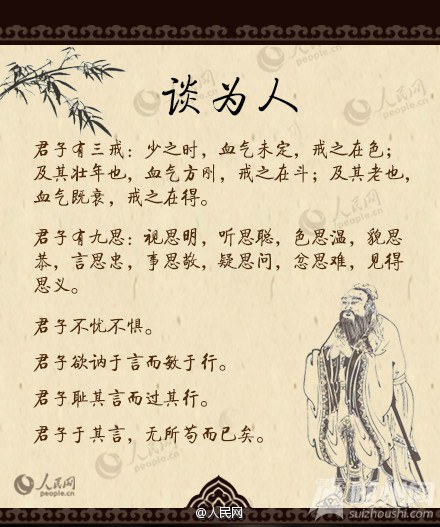 谈为人
君子有三戒：少之时，血气未定，戒之在色；
及其壮年也，血气方刚，戒之在斗；及其老也，
血气既衰，戒之在得。
君子有九思：视思明，听思聪，色思温，貌思
恭，言思忠，事思敬，疑思问，忿思难，见得
思义。
君子不忧不惧。
君子欲讷于言而敏于行。
君子耻其言而过其行。
君子于其言，无所苟而已矣。
人民网
people.cn
@人民网
suizhoushi.com